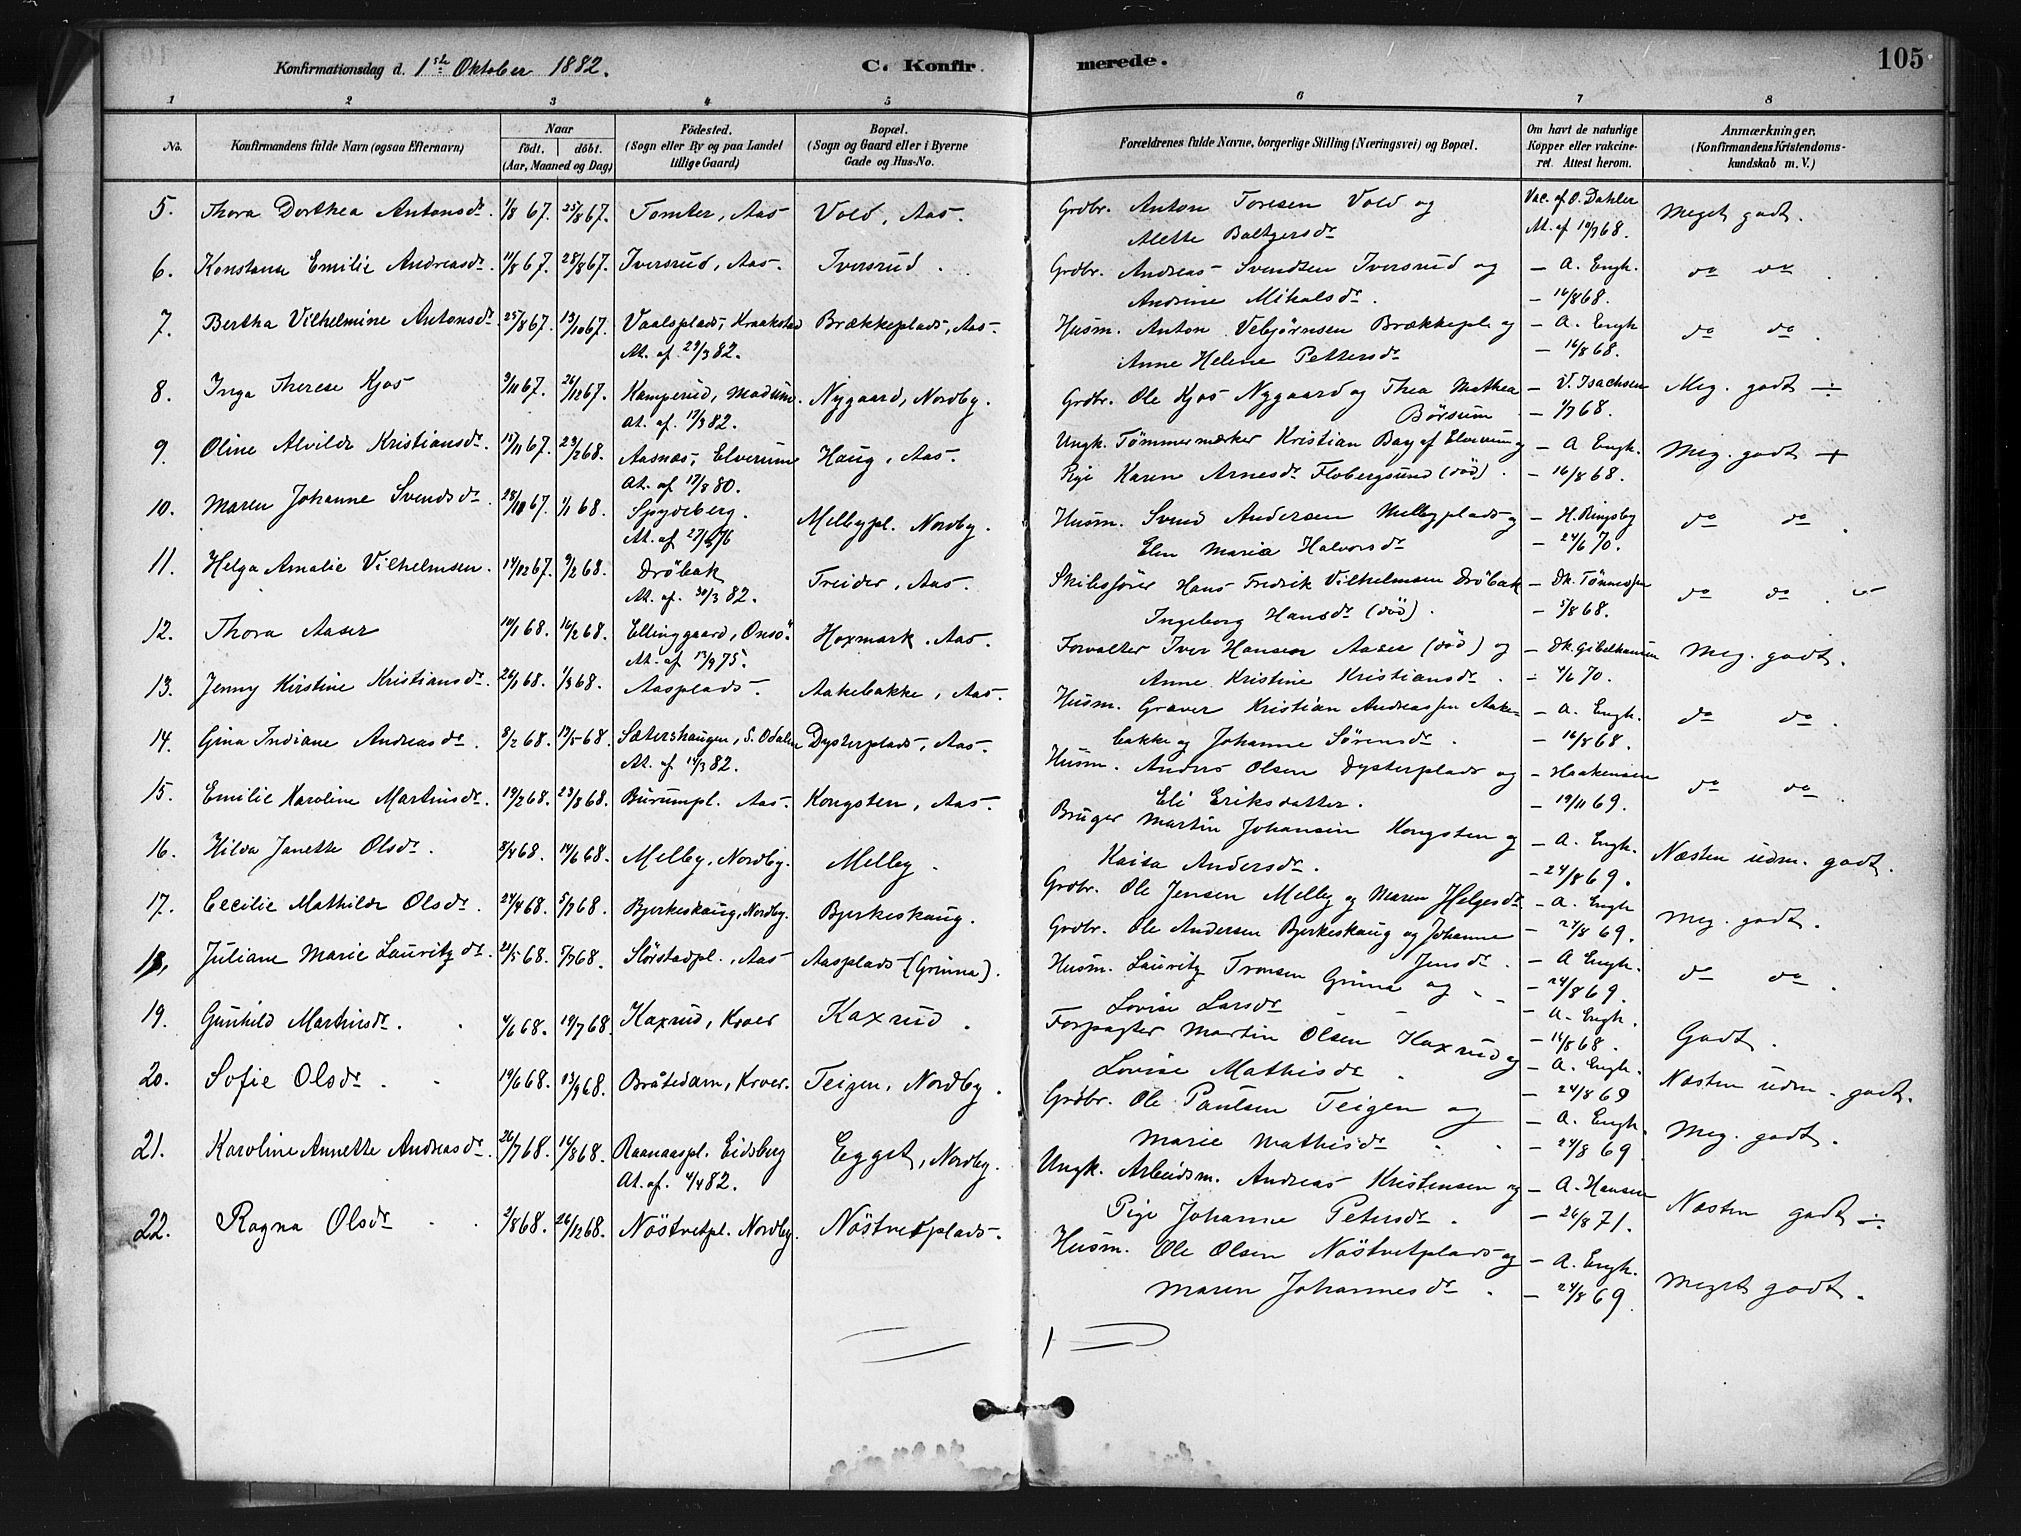 105
Konfirmationsdag d. 1ste Oktober 1882.
C. Konfirmerede.
1 2 3 4 5 6 7 8
No.
Konfirmandens fulde Navn (ogsaa Efternavn)
Naar
født. døbt.
(Aar, Maaned og Dag)
Fødested.
(Sogn eller By og paa Landet
tillige Gaard)
Bopæl.
(Sogn og Gaard eller i Byerne
Gade og Hus-No.
Forældrenes fulde Navne, borgerlige Stilling (Næringsvei) og Bopæl.
Om havt de naturlige
Kopper eller vakcineret. Attest herom.
Anmærkninger.
(Konfirmandens Kristendomskundskab m. V.)
5. Thora Dorthea Antonsdr. 1/8 67. 25/8 67. Tomter, Aas Vold, Aas. Grdbr. Anton Toresen Vold og Vac. af O. Dahler Meget godt.
Alette Baltzersdr At. af 10/9 68.
6. Konstanse Emilie Andreasdr. 11/8 67. 28/8 67. Iversrud, Aas. Iversrud. Grdbr. Andreas Svendsen Iversrud og — A. Engh. do do.
Andrine Mikalsdr. — 16/8 68.
7. Bertha Vilhelmine Antonsdr. 25/8 67. 13/10 67. Vaalsplads, Kraakstad Brækkeplads, Aas. Husm. Anton Vebjørnsen Brækkepl. og — A. Engh do do.
At. af 29/3 82. Anne Helene Pettersdr — 16/8 68.
8. Inga Therese Kjos 9/11 67. 26/12 67. Kamperud, Modum. Nygaard, Nordby. Grdbr. Ole Kjos Nygaard og Thea Mathea — V. Isachsen Meg. godt ÷
At. af. 17/3 82. Børsum — 1/7 68.
9. Oline Alvilde Kristiansdr. 17/11 67. 23/2 68. Aasnæs, Elverum Haug, Aas. Ungk. Tømmermærker Kristian Bay af Elverum og — A Engh. Meg. godt +
At. af 17/8 80. Pige Karen Arnesdr Flobergsund (død). — 16/8 68.
10. Maren Johanne Svendsdr. 28/10 67. 1/1 68. Spydeberg. Melbypl. Nordby. Husm. Svend Andersen Melbyplads og — H. Ringsby do do.
At. af 27/5 76 Elen Maria Halvorsdr — 24/6 70.
11. Helga Amalie Vilhelmsen. 14/12 67. 9/2 68. Drøbak Treider, Aas. Skibsfører Hans Fredrik Vilhelmsen Drøbak — Dk. Tønnessen do do.
At. af. 30/3 82. Ingeborg Hansdr (død). — 5/8 68.
12. Thora Aaser 10/1 68. 16/2 68. Ellinggaard, Onsø. Hoxmark, Aas. Forvalter Iver Hansen Aaser (død) og — Dk. Gibelhausen Meg. godt.
At. af 13/9 75. Anne Kristine Kristiansdr. — 4/6 70.
13. Jenny Kirstine Kristiansdr. 26/1 68. 1/3 68. Aasplads. Aakebakke, Aas. Husm. Graver Kristian Andreassen Aake- — A. Engh. do do.
bakke og Johanne Sørensdr. — 16/8 68.
14. Gina Indiane Andreasdr. 3/2 68. 17/5 68. Sætershaugen, S. Odalen Dysterplads, Aas. Husm. Anders Olsen Dysterplads og — Haakensen do do
At. af. 14/3 82. Eli Eriksdatter. — 19/11 69.
15. Emilie Karoline Martinsdr. 19/2 68. 23/8 68. Burumpl. Aas. Kongsten, Aas. Bruger Martin Johansen Kongsten og — A. Engh. Næsten udm. godt.
Kaisa Andersdr. — 24/8 69.
16. Hilda Janette Olsdr. 3/4 68. 14/6 68. Melby, Nordby. Melby. Grdbr. Ole Jensen Melby og Maren Helgesdr. — A. Engh Meg. godt.
— 24/8 69.
17. Cecilie Mathilde Olsdr. 24/4 68. 5/7 68. Bjerkeskaug, Nordby. Bjerkeskaug. Grdbr. Ole Andersen Bjerkeskaug og Johanne — A Engh. do do.
Jensdr. — 24/8 69.
18. Juliane Marie Lauritzdr. 21/5 68. 5/7 68. Slørstadpl., Aas Aasplads (Grinna). Husm. Lauritz Tronsen Grinna og — A. Engh. Godt.
Lovise Larsdr — 16/8 68.
19. Gunhild Martinsdr. 4/6 68. 19/7 68. Kaxrud, Kroer Kaxrud. Forpagter Martin Olsen Kaxrud og — A. Engh. Næsten udm. godt.
Lovise Mathisdr. — 24/8 69
20. Sofie Olsdr. 19/6 68. 13/9 68. Bråtedam, Kroer. Teigen, Nordby. Grdbr. Ole Paulsen Teigen og — A. Engh. Meg. godt.
Marie Mathisdr — 24/8 69.
21. Karoline Annette Andreasdr. 26/7 68. 16/8 68. Raanaaspl. Eidsberg Egget, Nordby. Ungk. Arbeidsm. Andreas Kristensen og — A. Hansen Næsten godt ÷
At. af. 4/4 82. Pige Johanne Petersdr. — 26/8 71.
22. Ragna Olsdr 2/8 68. 26/12 68. Nøstvetpl. Nordby. Nøstvetplads. Husm. Ole Olsen Nøstvetplads og — A. Engh. Meget godt.
Maren Johannesdr. — 24/8 69.